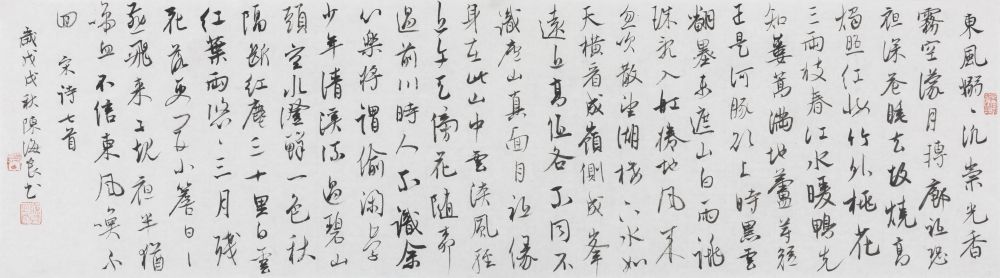 東風嫋〻汎崇光香
霧空濛月轉廊祇恐
夜深花睡去故燒高
燭照紅妝竹外桃花
三兩枝春江水暖鴨先
知蔞蒿滿地蘆芽短
正是河豚欲上時黑雲
翻墨未遮山白雨跳
珠亂入船捲地風來
忽吹散望湖樓下水如
天橫看成嶺側成峯
遠近高低各不同不
識廬山真面目祇緣
身在此山中雲淡風輕
近午天傍花隨柳
過前川時人不識余
心樂將謂偷閑學
少年清溪流過碧山
頭空水澄鮮一色秋
隔斷紅塵三十里白雲
紅葉兩悠〻三月殘
花落更開小簷日〻
燕飛來子規夜半猶
啼血不信東風喚不
回 宋詩七首
歲戊戌秋陳海良書